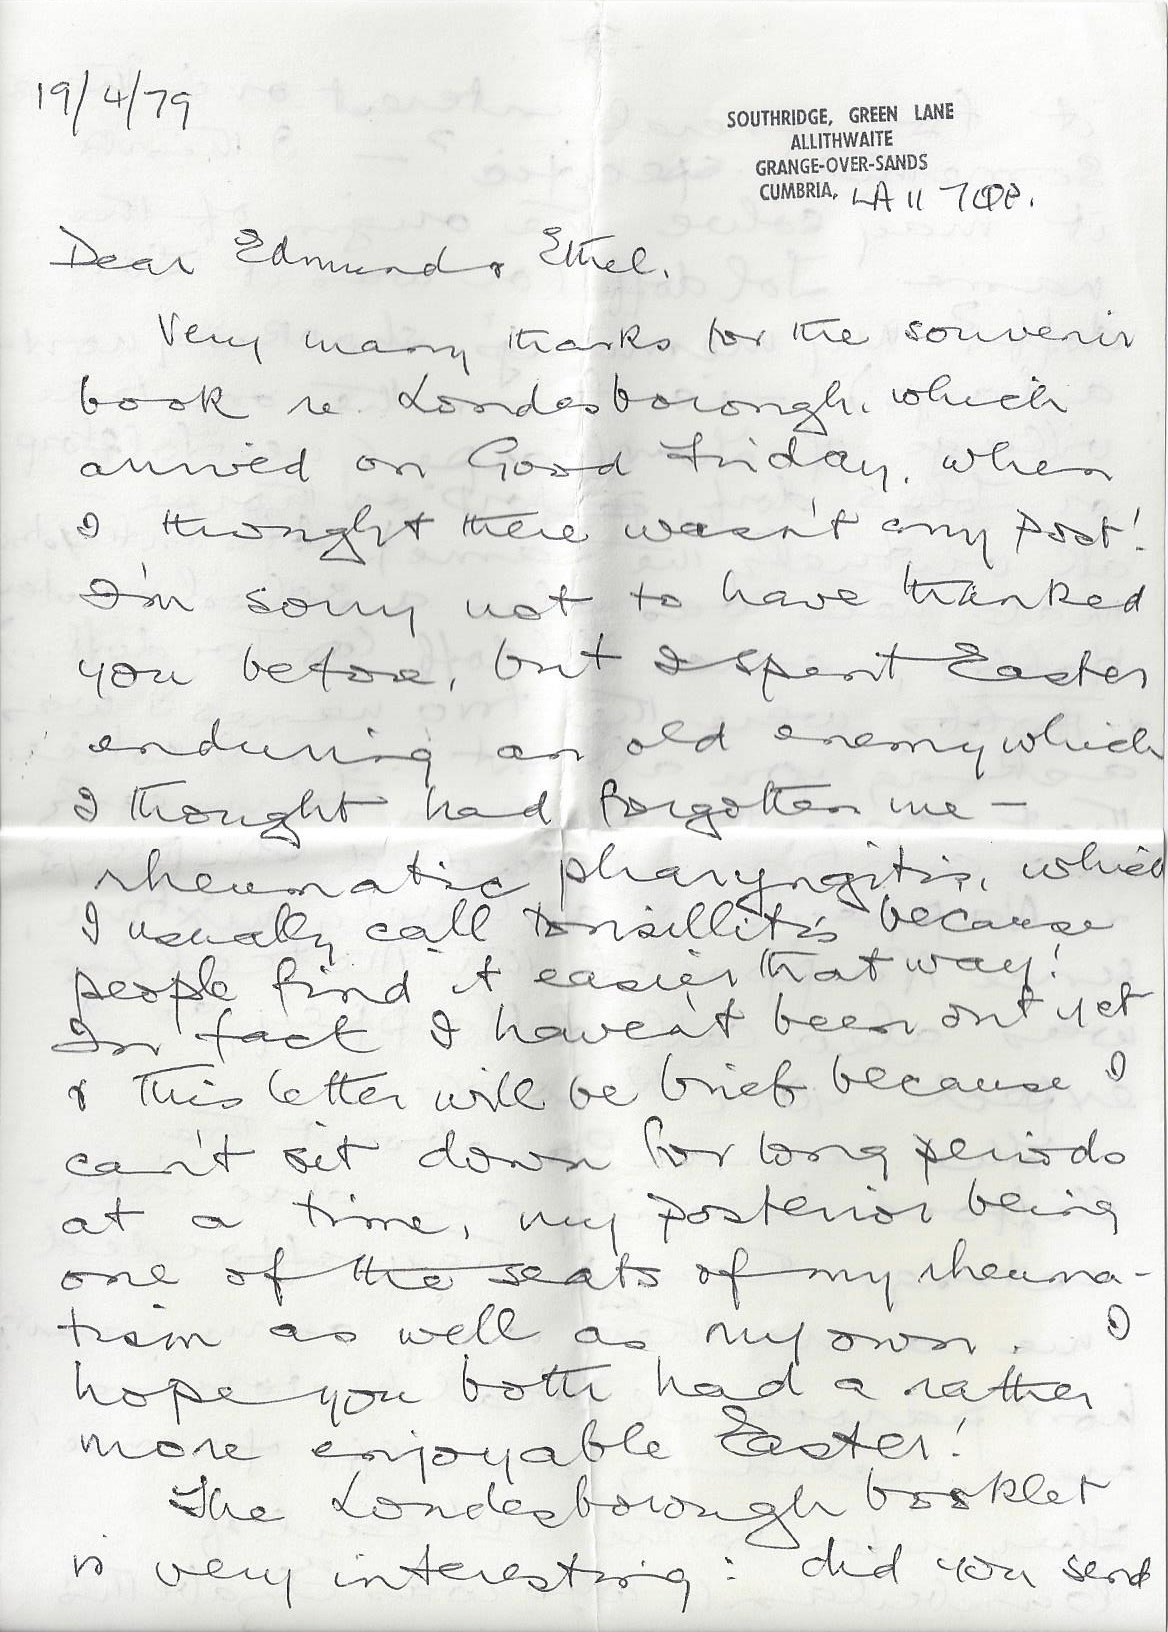 19/4/79
SOUTHRIDGE, GREEN LANE
ALLITHWAITE
GRANGE-OVER-SANDS
CUMBRIA, LA11 7QP.
Dear Edmund & Ethel.
Very many thanks for the souvenir
book re Londesborough, which
arrived on Good Friday, when
I thought there wasn't any post!
I'm sorry not to have thanked
you before, but I spent Easter
enduring an old enemy which
I thought had forgotten me –
rheumatic pharyngitis, which
I usually call tonsillitis because
people find it easier that way!
In fact I haven't been out yet
& this letter will be brief because I
can't sit down for long periods
at a time, my posterior being
one of the seats of my rheuma-
tism as well as my own. I
hope you both had a rather
more enjoyable Easter!
The Londesborough booklet
is very interesting: did you send